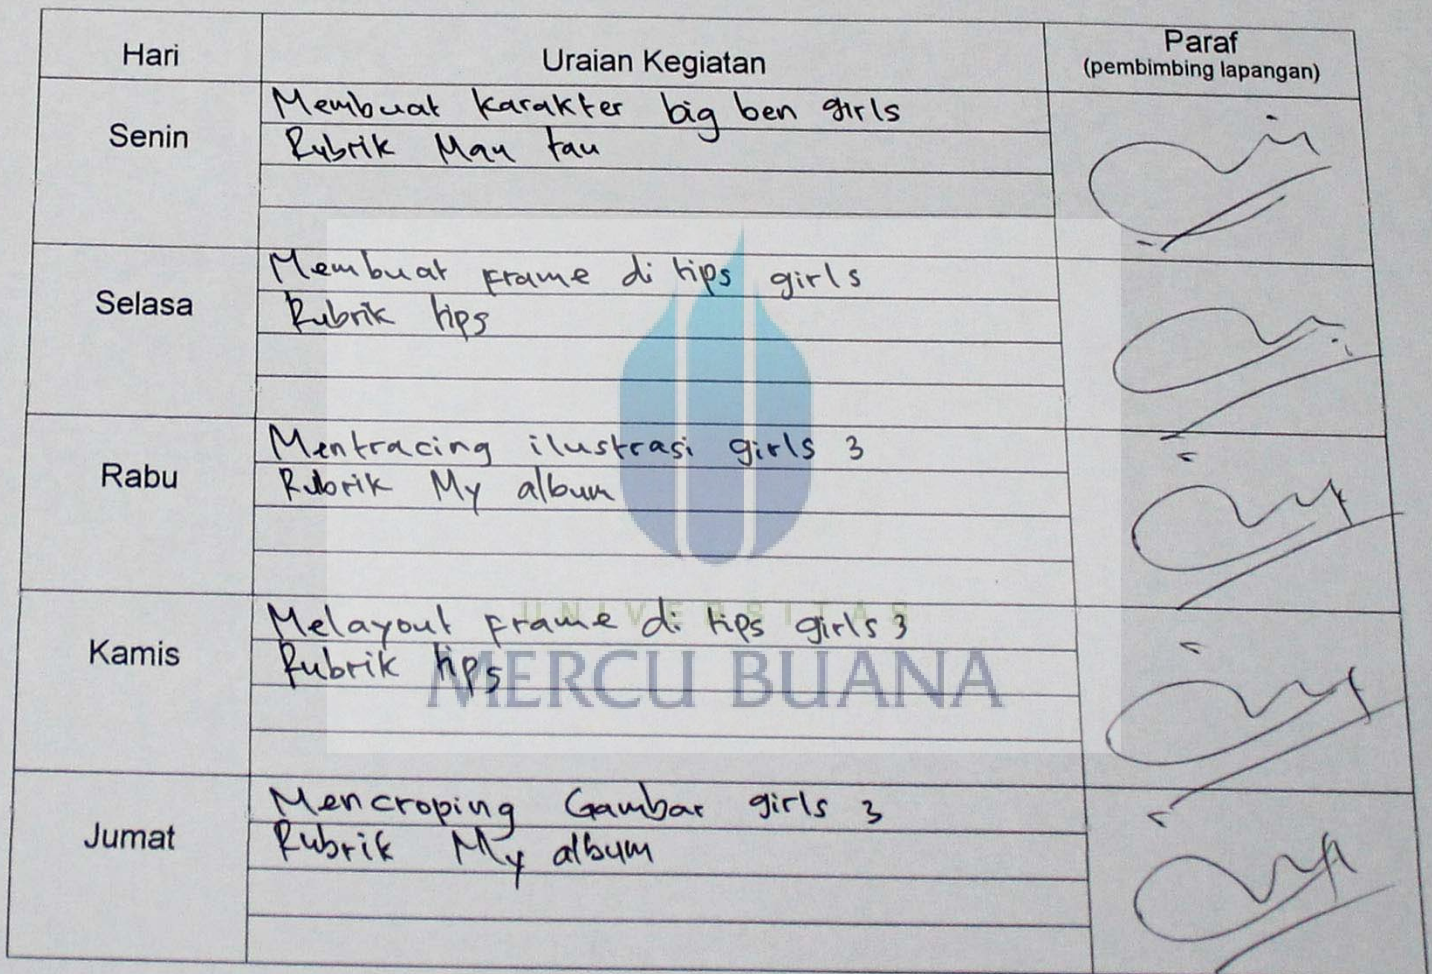 Hari
Uraian Kegiatan
Paraf
(pembimbing lapangan)
Senin
Membuat karakter big ben girls
Rubrik Mau tau
Selasa
Membuat frame di tips girls
Rubrik tips
Rabu
Mentracing ilustrasi girls 3
Rubrik My album
Kamis
Melayout frame di tips girls 3
Rubrik tips
UNIVERSITAS
MERCU BUANA
Jumat
Mencroping Gambar girls 3
Rubrik My album